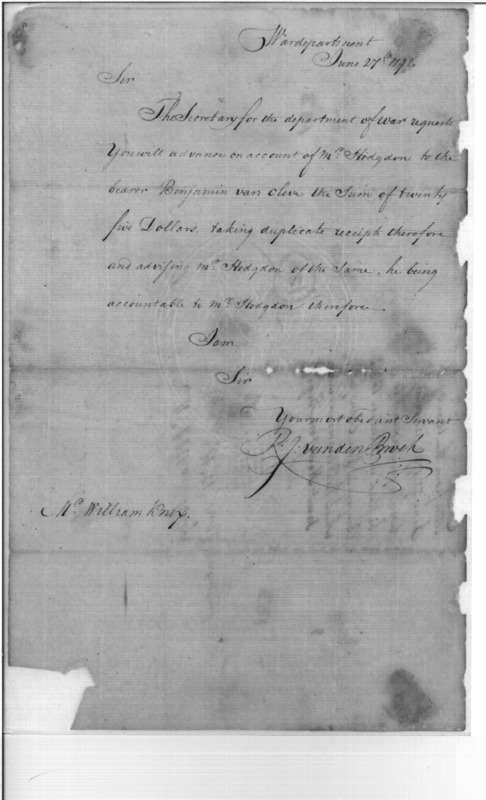 Wardepartment
June 27th 1792
Sir
The Secretary for the department of war requests
You will advance on account of Mr. Hodgdon to the
bearer Benjamin van cleve the Sum of twenty
five Dollars, taking duplicate receipts therefore
and advising Mr. Hodgdon of the Same, he being
accountable to Mr. Hodgdon therefore.
I am
Sir
Your most obedient Servant
R. J. vanden Broek
Mr. William Knox.